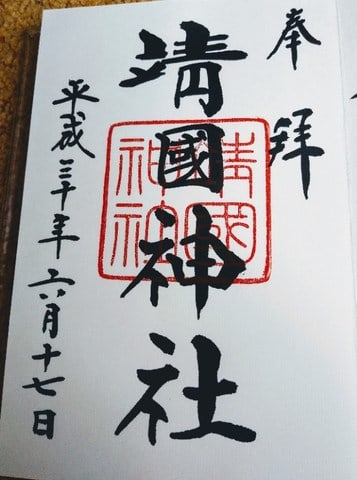 奉拝
靖國神社
靖國
神社
平成三十年六月十七日